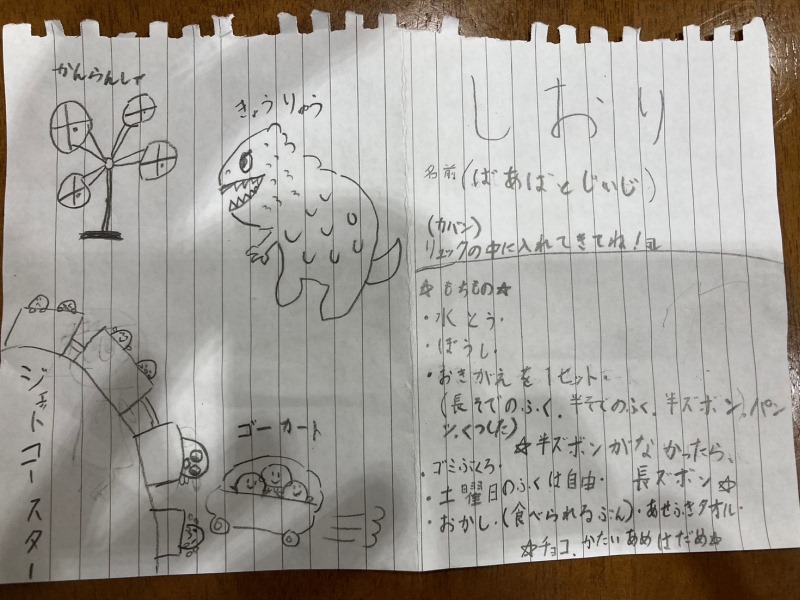 かんらんしゃ
きょうりゅう
ジェットコースター
ゴーカート
しおり
名前(ばあばとじいじ)
(カバン)
リュックの中に入れてきてね!
☆もちもの☆
・水とう・
・ぼうし・
・おきがえを1セット・
(長そでのふく、半そでのふく、半ズボン、パン
ツ、くつした)
☆半ズボンがなかったら、
長ズボン☆
・ゴミぶくろ・
・土曜日のふくは自由・
・おかし・(食べられるぶん)・あせふきタオル・
☆チョコ、かたいあめはだめ☆